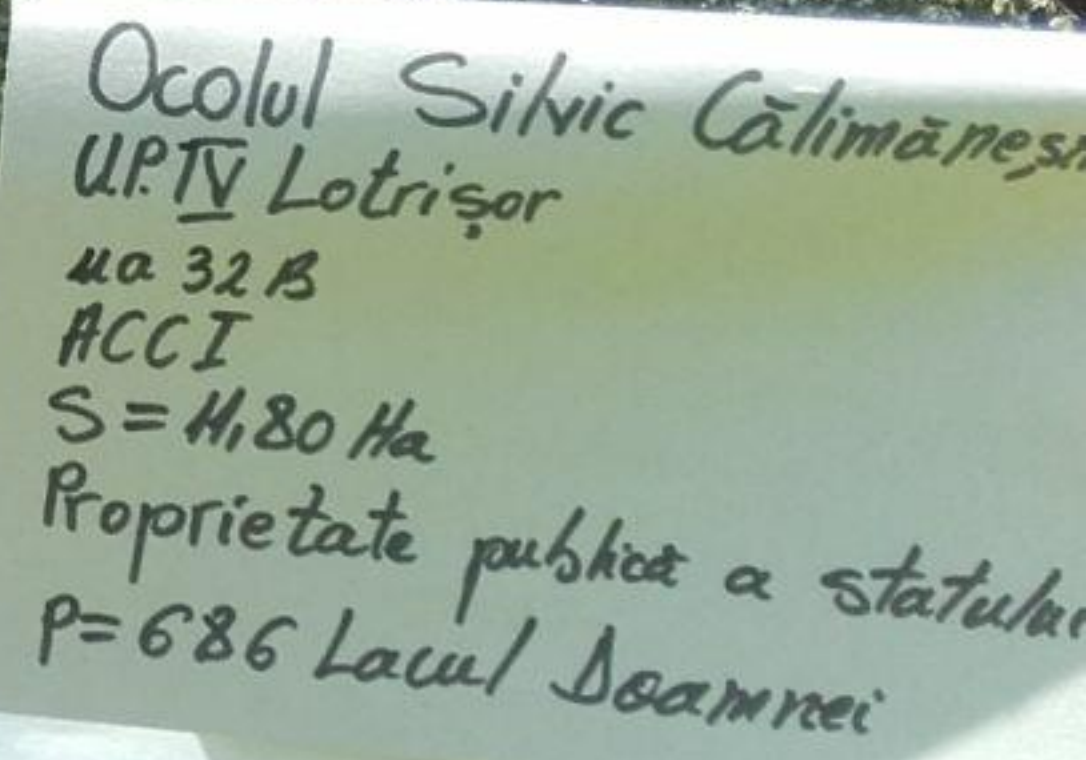 Ocolul Silvic Călimănești
U.P. IV Lotrișor
ua 32 B
ACCI
S = 11,80 Ha
Proprietate publică a statului
P= 686 Lacul Doamnei